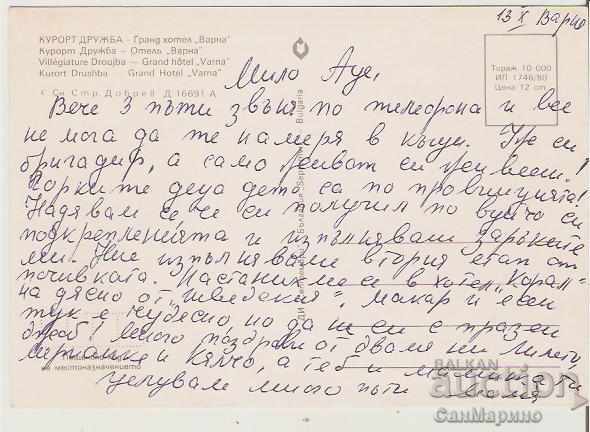 13 X Варна
КУРОРТ ДРУЖБА – Гранд хотел „Варна"
Курорт Дружба – Отель „Варна"
Villégiature Droujba – Grand hôtel „Varna"
Kurort Drushba – Grand Hotel „Varna"
С Си Стр. Добрев Д 16691 А
Тираж 10 000
ИП 1746/80
Цена 12 cm
Bulgaria
Мило
Вече 3 пъти звъня по телефона и все
не мога да те намеря в къщи. Уж си
бригадир, а само
Горките деца дето са по провинцията!
Надявам се, че си получил по вуйчо си
подкрепленията и изпълняваш заръките
ми. Ние изпълняваме втория етап от
почивката. Настанихме се в хотел „Корал"
на дясно от „шведския", макар и есен
тук е чудесно, но да не си с празен
джоб! Много поздрави от двама ни
и Кялчо, а теб и мамичка ти
целувам много пъти
местоназначението
BALKAN
auction
СанМарино